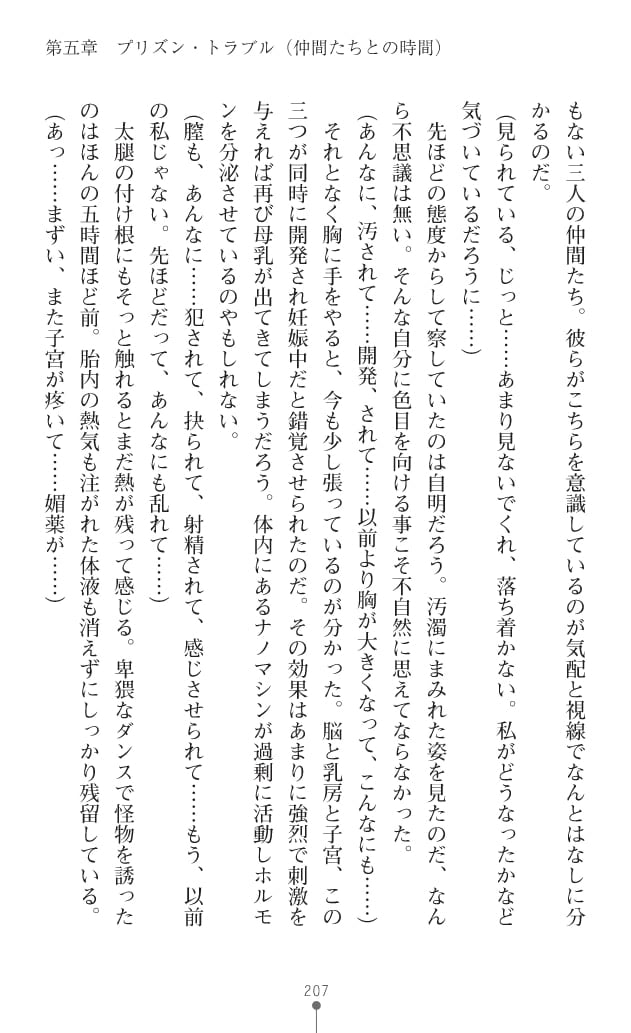 第五章　プリズン・トラブル（仲間たちとの時間）
もない三人の仲間たち。彼らがこちらを意識しているのが気配と視線でなんとはなしに分
かるのだ。
（見られている、じっと……あまり見ないでくれ、落ち着かない。私がどうなったかなど
気づいているだろうに……）
　先ほどの態度からして察していたのは自明だろう。汚濁にまみれた姿を見たのだ、なん
ら不思議は無い。そんな自分に色目を向ける事こそ不自然に思えてならなかった。
（あんなに、汚されて……開発、されて……以前より胸が大きくなって、こんなにも……）
　それとなく胸に手をやると、今も少し張っているのが分かった。脳と乳房と子宮、この
三つが同時に開発され妊娠中だと錯覚させられたのだ。その効果はあまりに強烈で刺激を
与えれば再び母乳が出てきてしまうだろう。体内にあるナノマシンが過剰に活動しホルモ
ンを分泌させているのやもしれない。
（膣も、あんなに……犯されて、抉られて、射精されて、感じさせられて……もう、以前
の私じゃない。先ほどだって、あんなにも乱れて……）
　太腿の付け根にもそっと触れるとまだ熱が残って感じる。卑猥なダンスで怪物を誘った
のはほんの五時間ほど前。胎内の熱気も注がれた体液も消えずにしっかり残留している。
（あっ……まずい、また子宮が疼いて……媚薬が……）
207